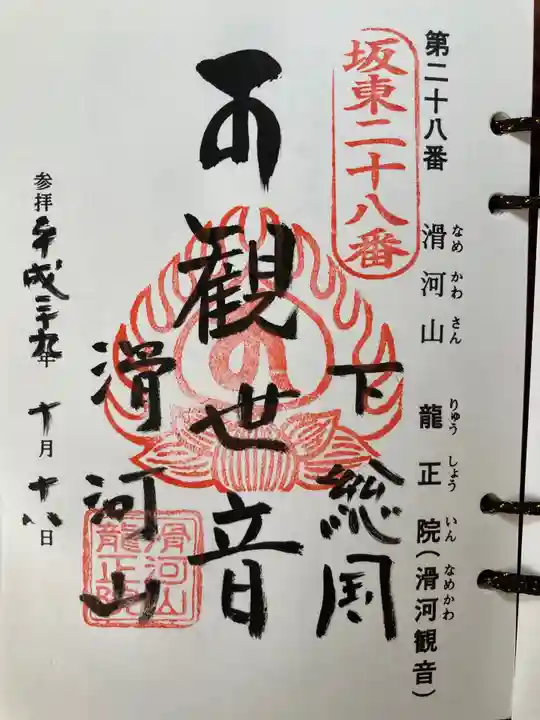 第二十八番 滑河山 龍正院(滑河観音)
なめ かわ さん りゅう しょう いん なめかわ
坂東二十八番
下総国
観世音
滑河山
滑河山
龍正院
参拝 平成二十九年 十月 十八日